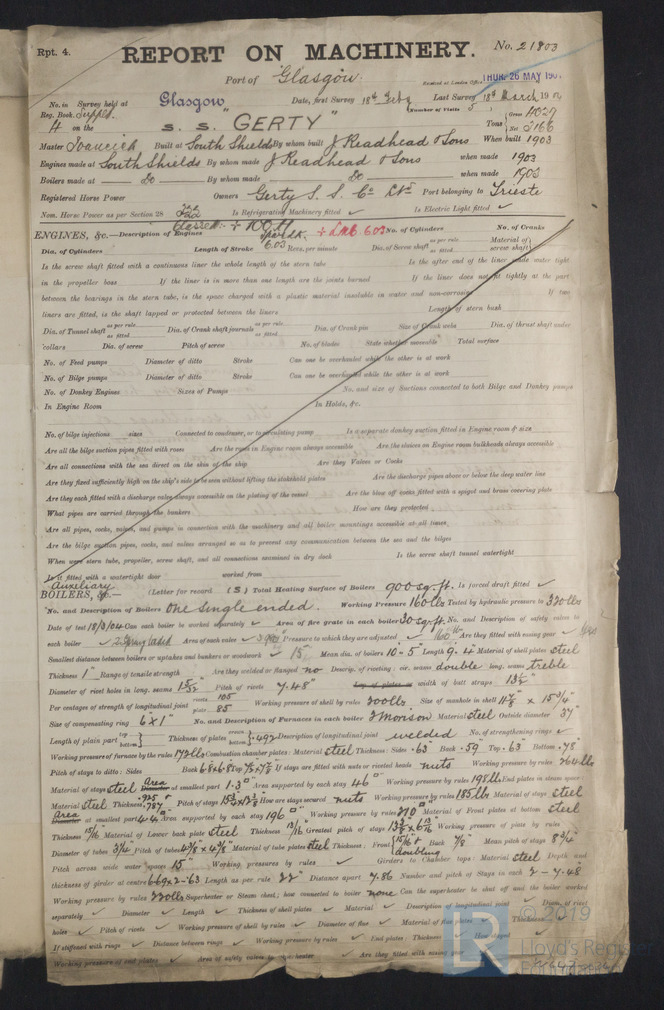 Rpt. 4.
REPORT ON MACHINERY.
No. 21803
Port of Glasgow.
Received at London Office THUR. 26 MAY 190
No. in Survey held at Glasgow Date, first Survey 18th Last Survey 18th March 190
Reg. Book. Supplt. (Number of Visits 5
on the S. S. "GERTY" Tons Gross 4029 Net 2166
Master Ivancich Built at South Shields By whom built J Readhead & Sons When built 1903
Engines made at South Shields By whom made J Readhead & Sons when made 1903
Boilers made at Do By whom made Do when made 1903
Registered Horse Power Owners Gerty S. S. Co Ltd Port belonging to Trieste
Nom. Horse Power as per Section 28 Is Refrigerating Machinery fitted Is Electric Light fitted
ENGINES, &c.—Description of Engines No. of Cylinders No. of Cranks
Dia. of Cylinders Length of Stroke Revs. per minute Dia. of Screw shaft as per rule as fitted Material of screw shaft
Is the screw shaft fitted with a continuous liner the whole length of the stern tube Is the after end of the liner made water tight
in the propeller boss If the liner is in more than one length are the joints burned If the liner does not fit tightly at the part
between the bearings in the stern tube, is the space charged with a plastic material insoluble in water and non-corrosive If two
liners are fitted, is the shaft lapped or protected between the liners Length of stern bush
Dia. of Tunnel shaft as per rule as fitted Dia. of Crank shaft journals as per rule as fitted Dia. of Crank pin Size of Crank webs Dia. of thrust shaft under
collars Dia. of screw Pitch of screw No. of blades State whether moveable Total surface
No. of Feed pumps Diameter of ditto Stroke Can one be overhauled while the other is at work
No. of Bilge pumps Diameter of ditto Stroke Can one be overhauled while the other is at work
No. of Donkey Engines Sizes of Pumps No. and size of Suctions connected to both Bilge and Donkey pumps
In Engine Room In Holds, &c.
No. of bilge injections sizes Connected to condenser, or to circulating pump Is a separate donkey suction fitted in Engine room & size
Are all the bilge suction pipes fitted with roses Are the roses in Engine room always accessible Are the sluices on Engine room bulkheads always accessible
Are all connections with the sea direct on the skin of the ship Are they Valves or Cocks
Are they fixed sufficiently high on the ship's side to be seen without lifting the stokehold plates Are the discharge pipes above or below the deep water line
Are they each fitted with a discharge valve always accessible on the plating of the vessel Are the blow off cocks fitted with a spigot and brass covering plate
What pipes are carried through the bunkers How are they protected
Are all pipes, cocks, valves, and pumps in connection with the machinery and all boiler mountings accessible at all times
Are the bilge suction pipes, cocks, and valves arranged so as to prevent any communication between the sea and the bilges
When were stern tube, propeller, screw shaft, and all connections examined in dry dock Is the screw shaft tunnel watertight
Is it fitted with a watertight door worked from
Auxiliary
BOILERS, &c.— (Letter for record (S) Total Heating Surface of Boilers 900 sq. ft. Is forced draft fitted
No. and Description of Boilers One single ended. Working Pressure 160 lbs Tested by hydraulic pressure to 320 lbs
Date of test 18/3/04 Can each boiler be worked separately Area of fire grate in each boiler 30 sq. ft. No. and Description of safety valves to
each boiler Area of each valve Pressure to which they are adjusted Are they fitted with easing gear
Smallest distance between boilers or uptakes and bunkers or woodwork 15" Mean dia. of boilers 10-5" Length Material of shell plates steel
Thickness 1" Range of tensile strength Are they welded or flanged no Descrip. of riveting: cir. seams double long. seams treble
Diameter of rivet holes in long. seams 1 5/32" Pitch of rivets 7.48" Lap of plates or width of butt straps 13 1/2"
Per centages of strength of longitudinal joint rivets 105 plate 85 Working pressure of shell by rules 200 lbs Size of manhole in shell 11 7/8" x 15 3/4"
Size of compensating ring 6 x 1" No. and Description of Furnaces in each boiler 2 Morison Material steel Outside diameter 37"
Length of plain part top bottom Thickness of plates crown bottom .492 Description of longitudinal joint welded No. of strengthening rings
Working pressure of furnace by the rules 172 lbs Combustion chamber plates: Material steel Thickness: Sides .63 Back .59 Top .63 Bottom .78"
Pitch of stays to ditto: Sides Back Top If stays are fitted with nuts or riveted heads nuts Working pressure by rules 264 lbs
Material of stays steel Area at smallest part 1.3" Area supported by each stay 46" Working pressure by rules 198 lbs End plates in steam space:
Material steel Thickness .925 .787 Pitch of stays How are stays secured nuts Working pressure by rules 185 lbs Material of stays steel
Area at smallest part Area supported by each stay 196" Working pressure by rules 210 Material of Front plates at bottom steel
Thickness 15/16" Material of Lower back plate steel Thickness 13/16" Greatest pitch of stays Working pressure of plate by rules
Diameter of tubes 3 1/4" Pitch of tubes Material of tube plates steel Thickness: Front 15/16" & doubling Back 7/8 Mean pitch of stays 8 3/4"
Pitch across wide water spaces 15" Working pressures by rules Girders to Chamber tops: Material steel Depth and
thickness of girder at centre Length as per rule 22" Distance apart 7.86 Number and pitch of Stays in each 2-7.48
Working pressure by rules 220 lbs Superheater or Steam chest; how connected to boiler none Can the superheater be shut off and the boiler worked
separately Diameter Length Thickness of shell plates Material Description of longitudinal joint Diam. of rivet
holes Pitch of rivets Working pressure of shell by rules Diameter of flue Material of flue plates Thickness
If stiffened with rings Distance between rings Working pressure by rules End plates: Thickness How stayed
Working pressure of end plates Area of safety valves to superheater Are they fitted with easing gear
© 2019
Lloyd's Register
Foundation